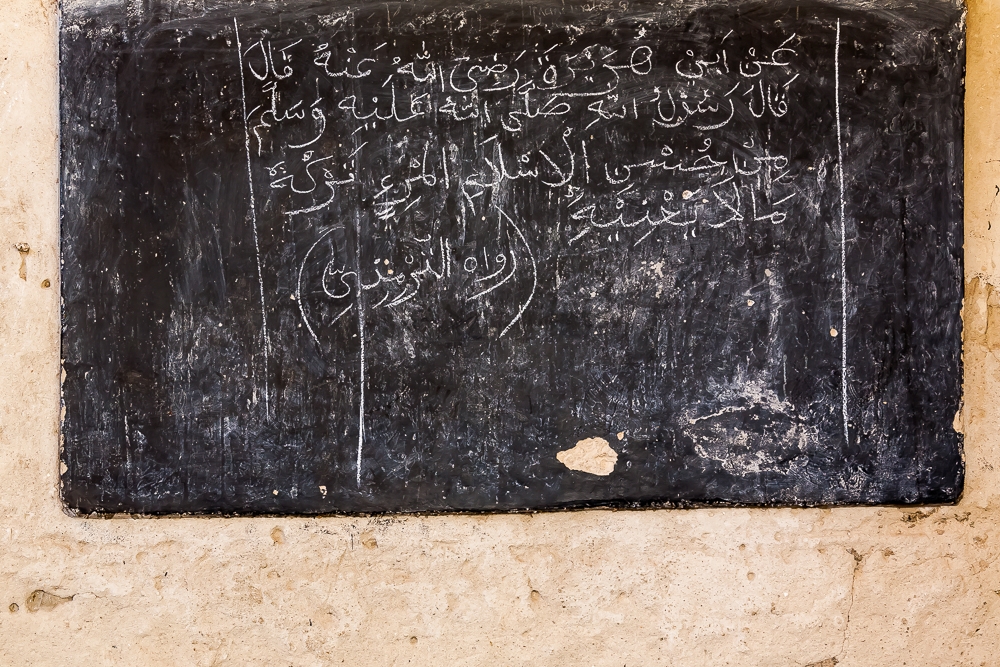 عَنْ اَبِىْ هُرَيْرَةَ رَضِىَ اللّٰهُ عَنْهُ قَالَ
قَالَ رَسُوْلُ اللّٰهِ صَلَّى اللّٰهُ عَلَيْهِ وَسَلَّمَ
مِنْ حُسْنِ الْاِسْلَامِ الْمَرْءِ تَرْكُهُ
مَالَا يَعْنِيْهِ
(رواه التّرمذىّ)